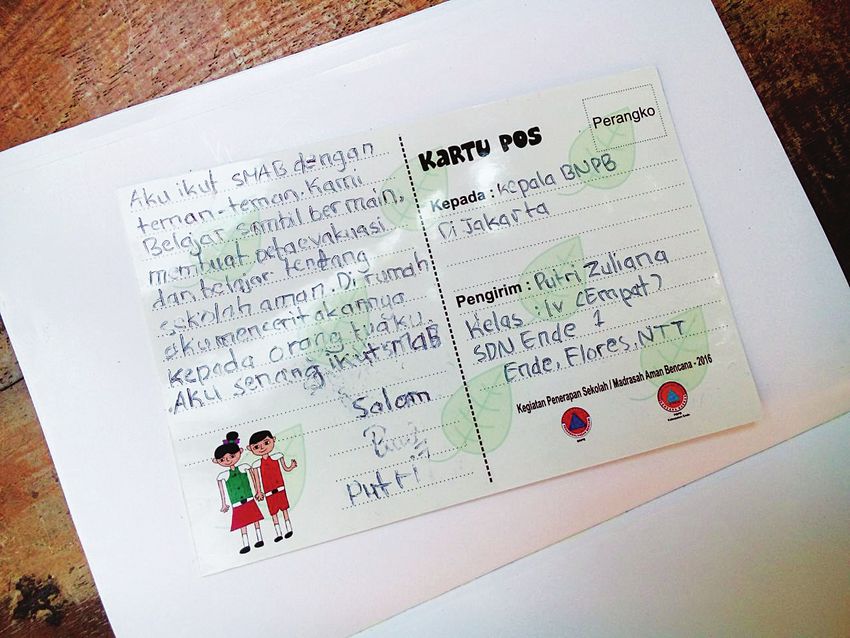 Aku ikut SMAB dengan
teman-teman. Kami
Belajar sambil bermain,
membuat peta evakuasi
dan belajar tentang
sekolah aman. Di rumah
aku menceritakannya
kepada orang tuaku.
Aku senang ikut SMAB
Salam
Putri
KARTU POS
Perangko
Kepada : Kepala BNPB
Di Jakarta
Pengirim : Putri Zuliana
Kelas : IV (Empat)
SDN Ende 1
Ende, Flores, NTT
Kegiatan Penerapan Sekolah / Madrasah Aman Bencana - 2016